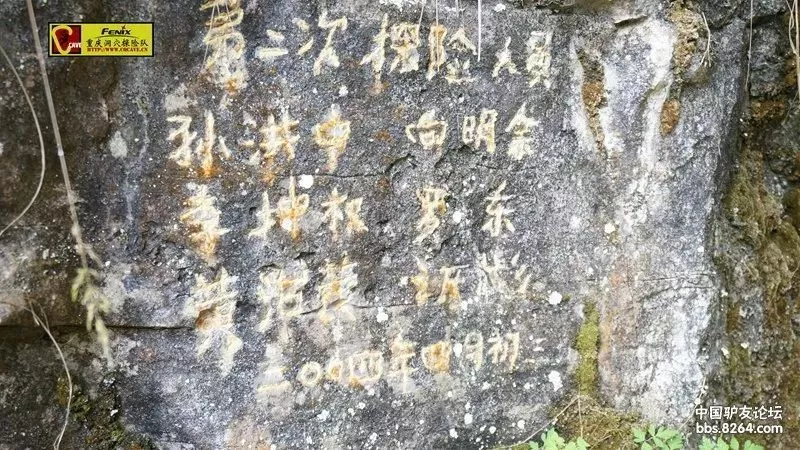 FENIX
CAVE
重庆洞穴探险队
HTTP://WWW.CQCAVE.CN
第二次探险人员
孙洪中 向明余
李坤权 罗东
黄 黄
二〇〇四年四月初二
中国驴友论坛
bbs.8264.com